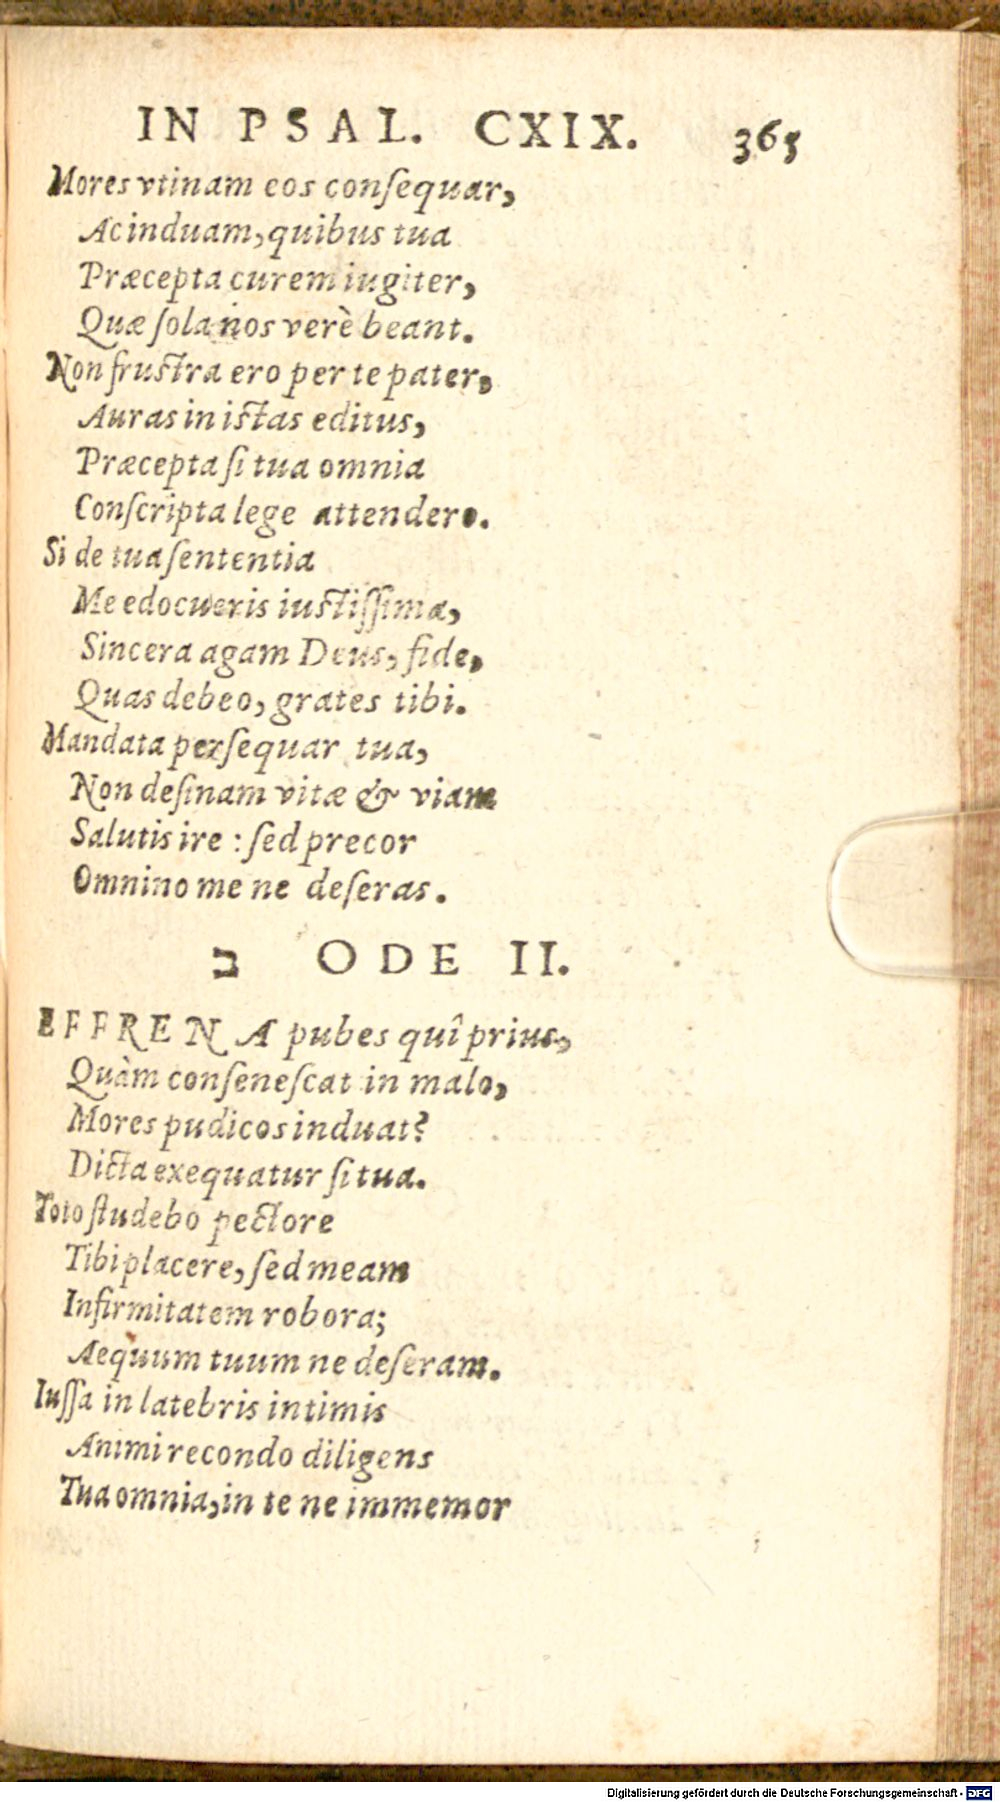 IN PSAL. CXIX. 365
Mores vtinam eos conſequar,
Ac induam, quibus tua
Præcepta curem iugiter,
Quæ ſola nos verè beant.
Non fruſtra ero per te pater,
Auras in iſtas editus,
Præcepta ſi tua omnia
Conſcripta lege attendero.
Si de tua ſententia
Me edocueris iuſtiſſima,
Sincera agam Deus, fide,
Quas debeo, grates tibi.
Mandata perſequar tua,
Non deſinam vitæ & viam
Salutis ire : ſed precor
Omnino me ne deſeras.
ב ODE II.
EFFRENA pubes quî prius,
Quàm conſeneſcat in malo,
Mores pudicos induat?
Dicta exequatur ſi tua.
Toto ſtudebo pectore
Tibi placere, ſed meam
Infirmitatem robora;
Aequum tuum ne deſeram.
Iuſſa in latebris intimis
Animi recondo diligens
Tua omnia, in te ne immemor
Digitalisierung gefördert durch die Deutsche Forschungsgemeinschaft - DFG